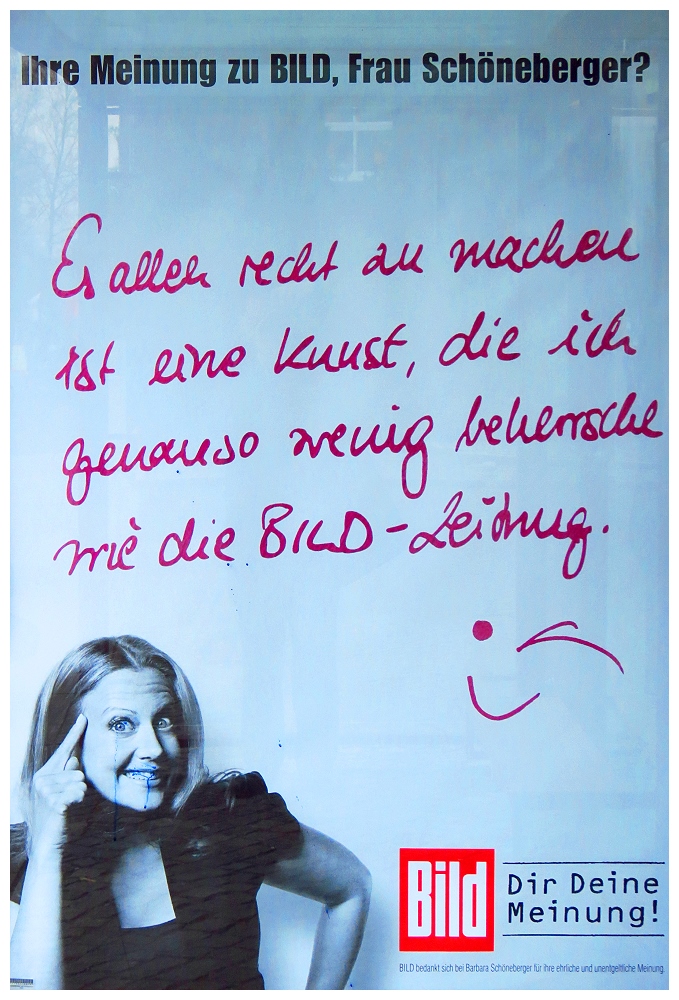 Ihre Meinung zu BILD, Frau Schöneberger?
Es allen recht zu machen
ist eine Kunst, die ich
genauso wenig beherrsche
wie die BILD-Zeitung.
Bild
Dir Deine
Meinung!
BILD bedankt sich bei Barbara Schöneberger für ihre ehrliche und unentgeltliche Meinung.